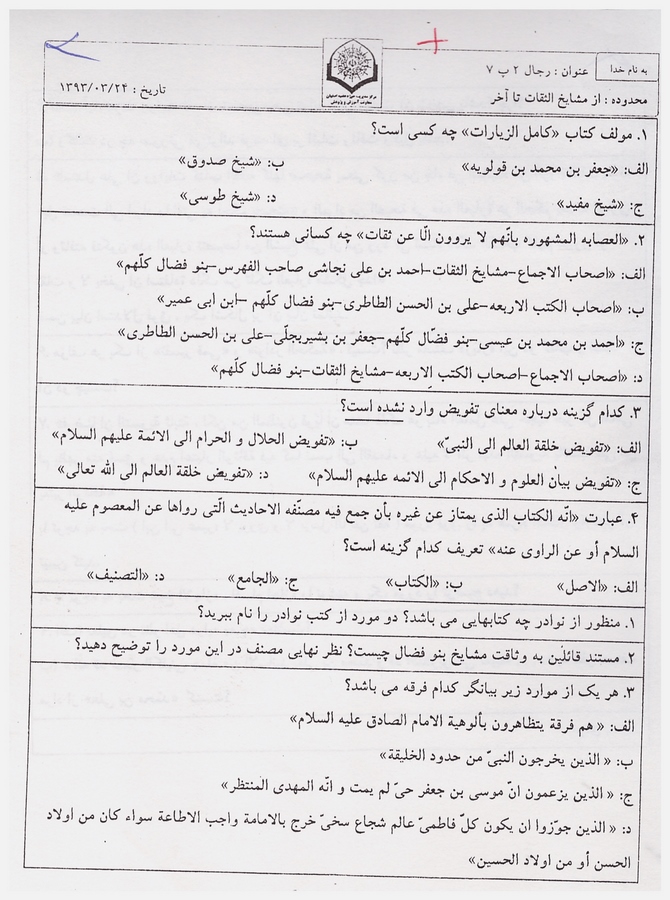 به نام خدا
عنوان : رجال ۲ ب ۷
محدوده : از مشایخ الثقات تا آخر
تاریخ : ۱۳۹۳/۰۳/۲۴
۱. مولف کتاب «کامل الزیارات» چه کسی است؟
الف: «جعفر بن محمد بن قولویه» ب: «شیخ صدوق»
ج: «شیخ مفید» د: «شیخ طوسی»
۲. «العصابه المشهوره بانّهم لا یروون الّا عن ثقات» چه کسانی هستند؟
الف: «اصحاب الاجماع-مشایخ الثقات-احمد بن علی نجاشی صاحب الفهرس-بنو فضال کلّهم»
ب: «اصحاب الکتب الاربعه-علی بن الحسن الطاطری-بنو فضال کلّهم -ابن ابی عمیر»
ج: «احمد بن محمد بن عیسی-بنو فضّال کلّهم-جعفر بن بشیربجلّی-علی بن الحسن الطاطری»
د: «اصحاب الاجماع-اصحاب الکتب الاربعه-مشایخ الثقات-بنو فضال کلّهم»
۳. کدام گزینه درباره معنای تفویض وارد نشده است؟
الف: «تفویض خلقة العالم الی النبیّ» ب: «تفویض الحلال و الحرام الی الائمة علیهم السلام»
ج: «تفویض بیان العلوم و الاحکام الی الائمه علیهم السلام» د: «تفویض خلقة العالم الی الله تعالی»
۴. عبارت «انّه الکتاب الذی یمتاز عن غیره بأن جمع فیه مصنّفه الاحادیث الّتی رواها عن المعصوم علیه
السلام أو عن الراوی عنه» تعریف کدام گزینه است؟
الف: «الاصل» ب: «الکتاب» ج: «الجامع» د: «التصنیف»
۱. منظور از نوادر چه کتابهایی می باشد؟ دو مورد از کتب نوادر را نام ببرید؟
۲. مستند قائلین به وثاقت مشایخ بنو فضال چیست؟ نظر نهایی مصنف در این مورد را توضیح دهید؟
۳. هر یک از موارد زیر بیانگر کدام فرقه می باشد؟
الف: « هم فرقة یتظاهرون بألوهیة الامام الصادق علیه السلام»
ب: « الذین یخرجون النبیّ من حدود الخلیقة»
ج: « الذین یزعمون انّ موسی بن جعفر حیّ لم یمت و انّه المهدی المنتظر»
د: « الذین جوّزوا ان یکون کلّ فاطمیّ عالم شجاع سخیّ خرج بالامامة واجب الاطاعة سواء کان من اولاد
الحسن أو من اولاد الحسین»